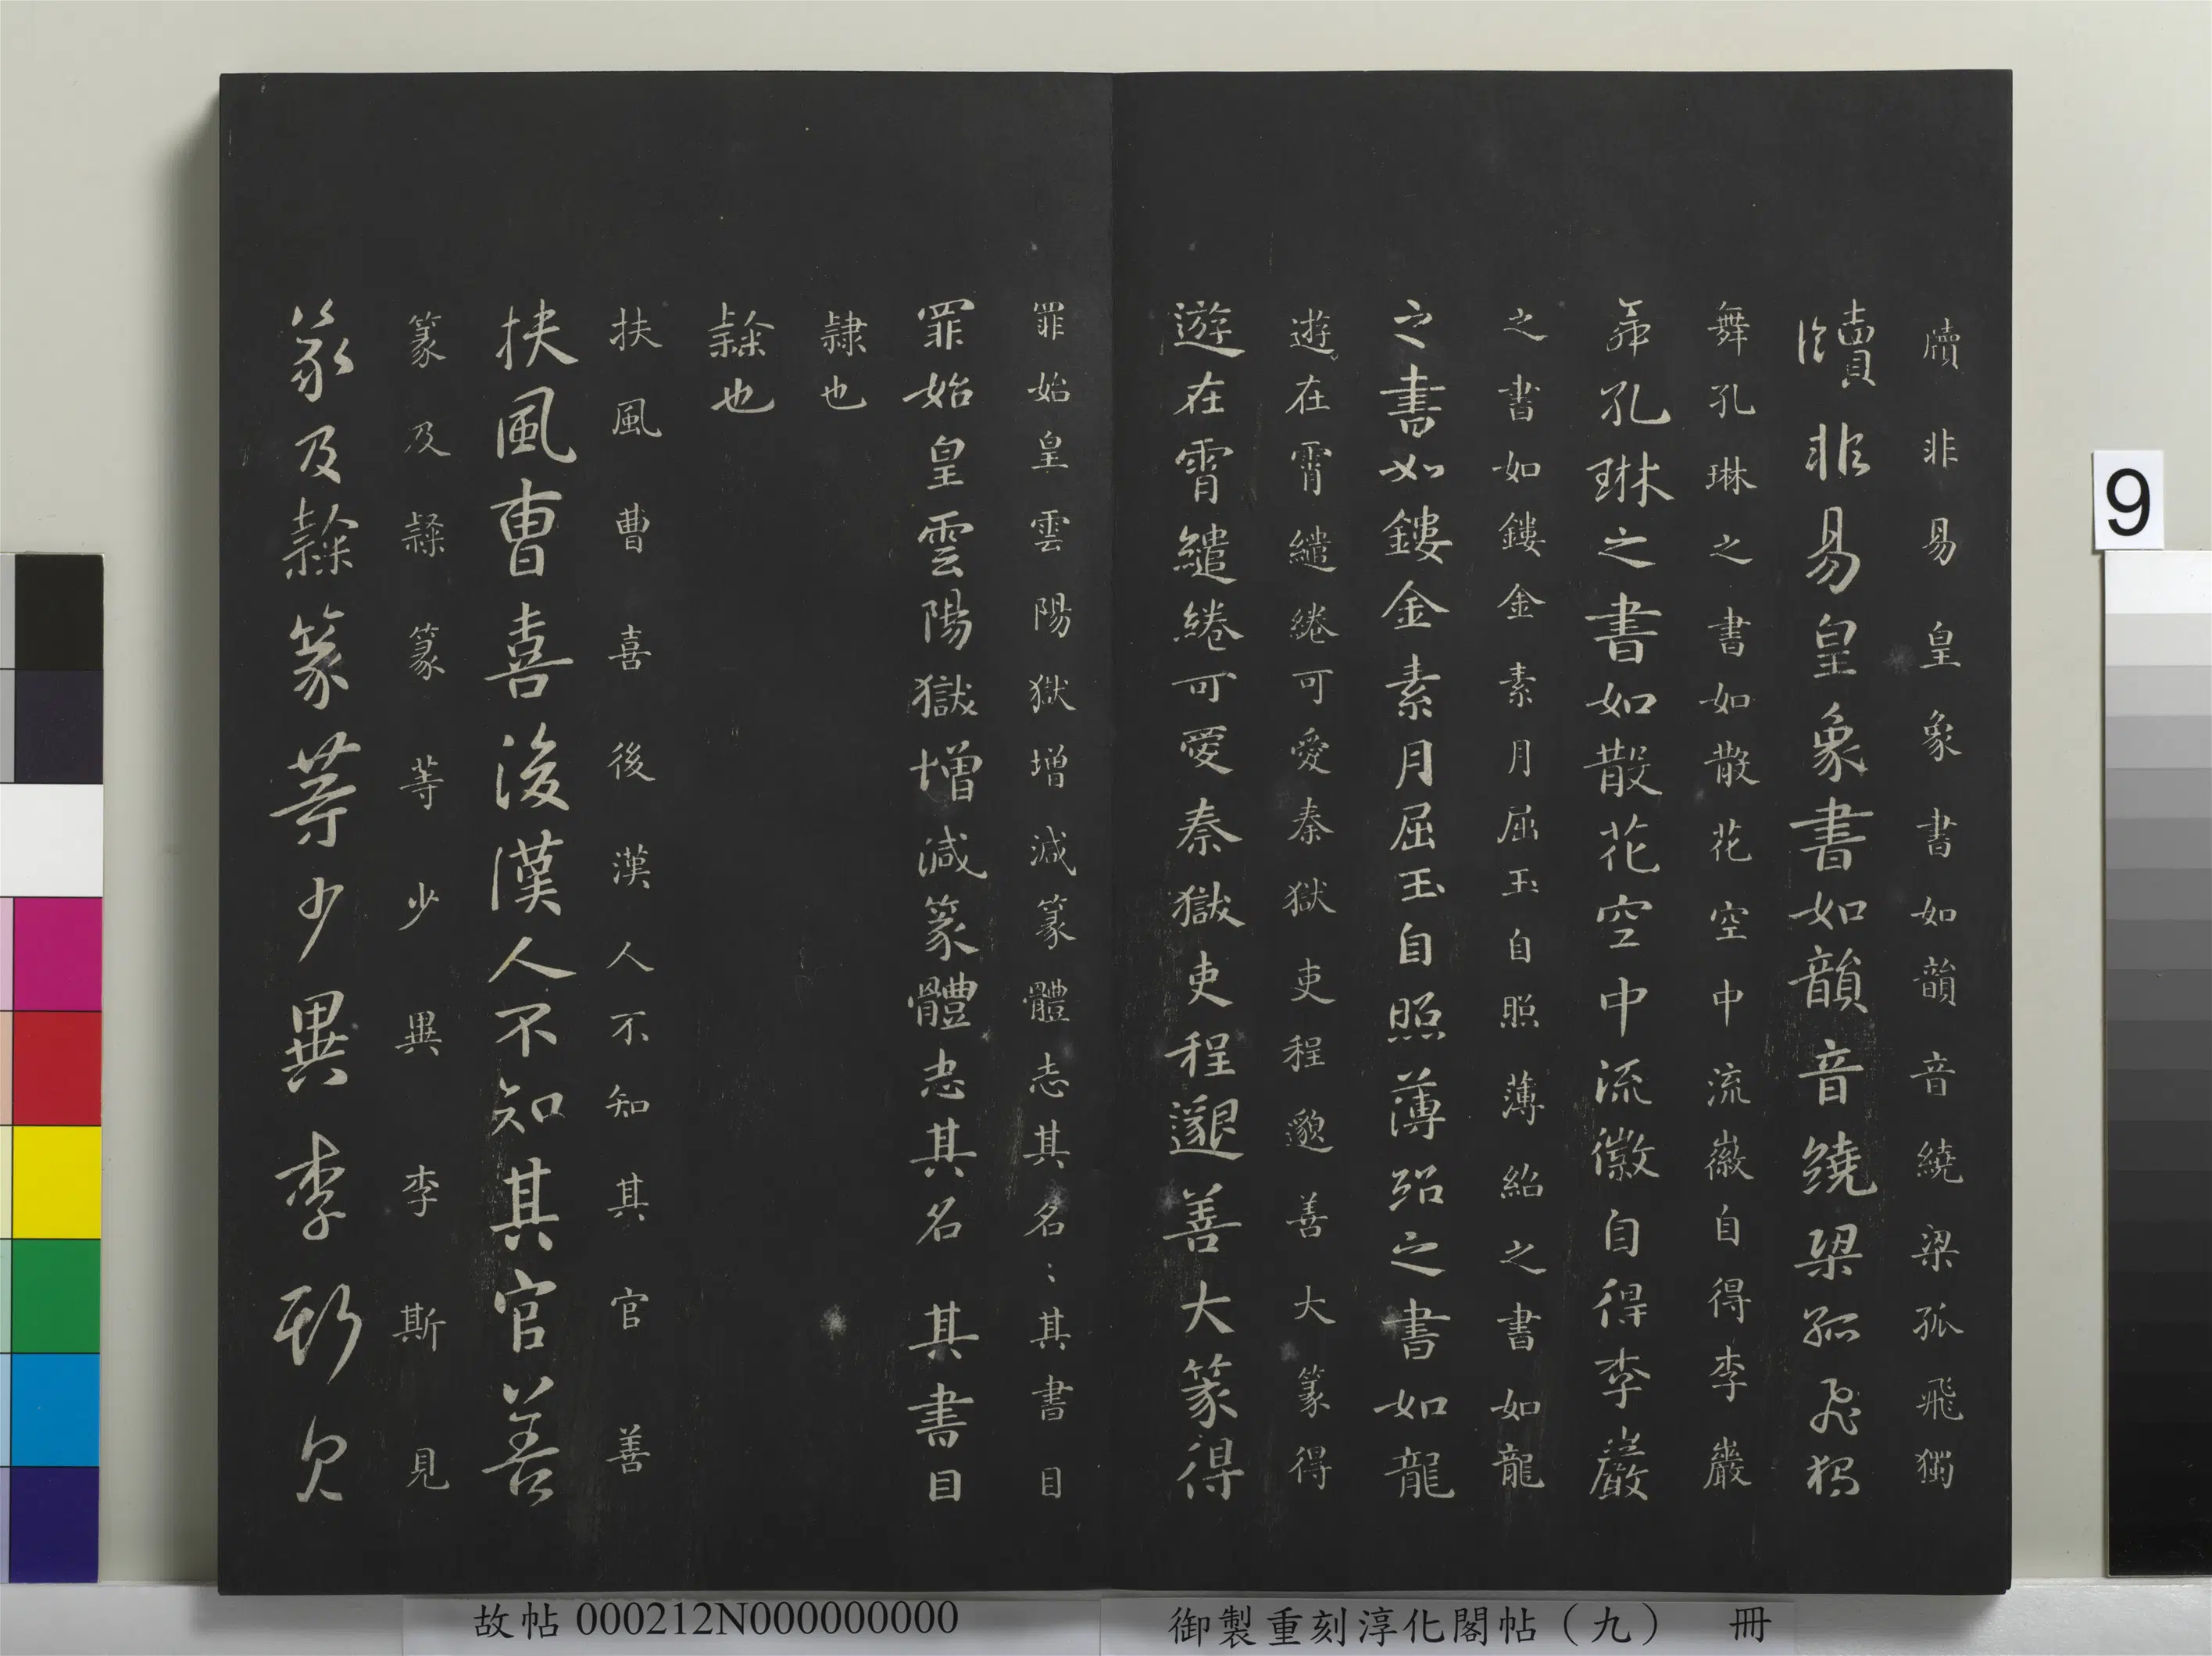 牘非易皇象書如韻音繞梁孤飛獨
牘非易皇象書如韻音繞梁孤飛獨
舞孔琳之書如散花空中流徽自得李巖
舞孔琳之書如散花空中流徽自得李巖
之書如鏤金素月屈玉自照薄紹之書如龍
之書如鏤金素月屈玉自照薄紹之書如龍
遊在霄繾綣可愛秦獄吏程邈善大篆得
遊在霄繾綣可愛秦獄吏程邈善大篆得
罪始皇雲陽獄增減篆體志其名〻其書目
罪始皇雲陽獄增減篆體志其名 其書目
隷也
隷也
扶風曹喜後漢人不知其官善
扶風曹喜後漢人不知其官善
篆及隷篆等少異李斯見
篆及隷篆等少異李斯見
9
故帖 000212N000000000
御製重刻淳化閣帖（九） 冊